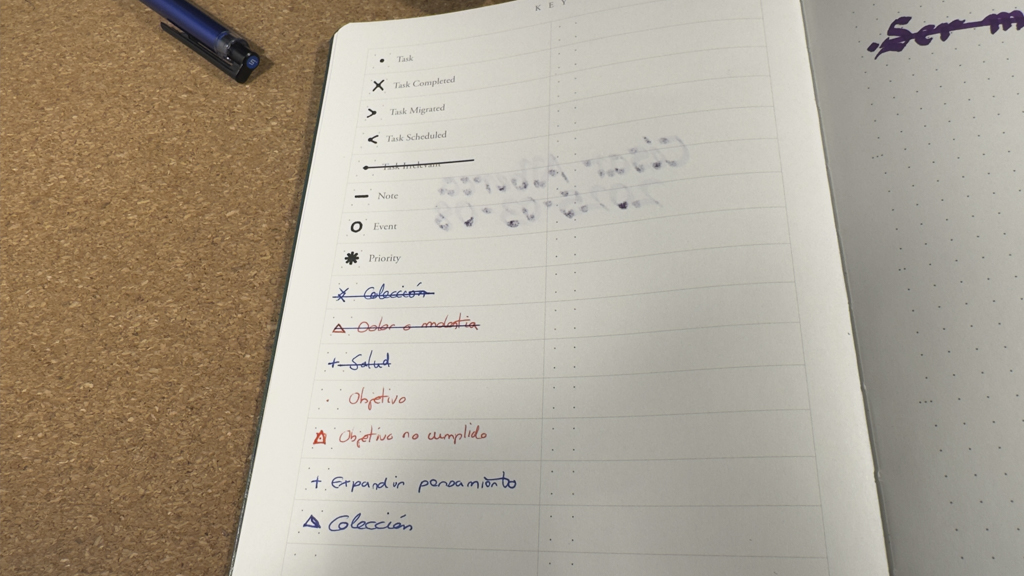 KEY
• Task
× Task Completed
> Task Migrated
< Task Scheduled
• Task Irrelevant
– Note
O Event
✱ Priority
× Colección
△ Dolor o molestia
+ Salud
· Objetivo
△ Objetivo no cumplido
+ Expandir pensamiento
△ Colección
· Ser m